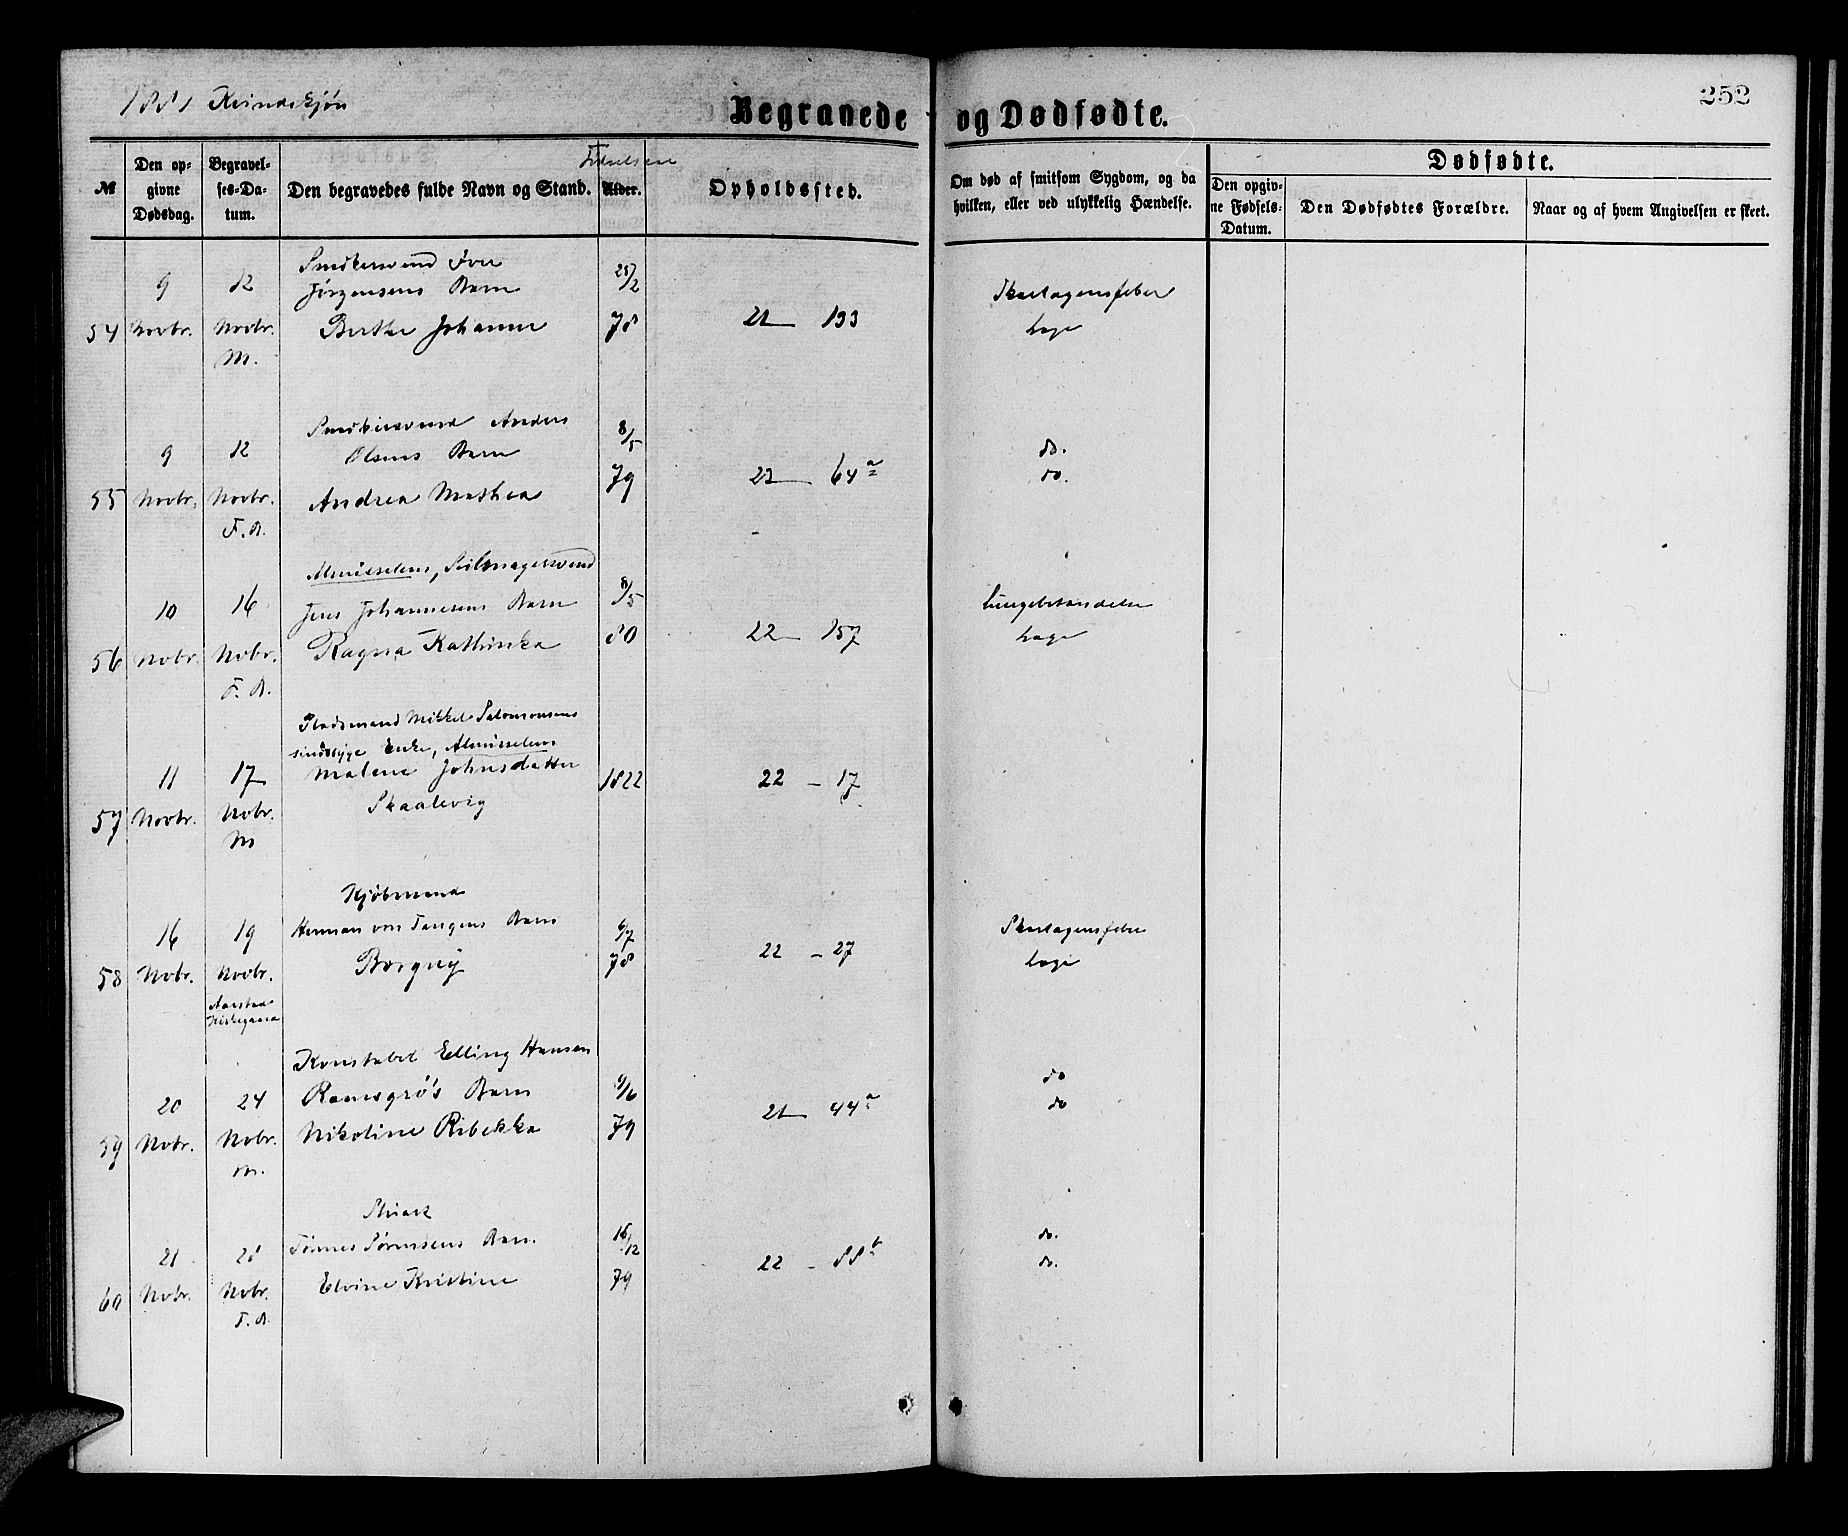 1881 Kvindekjøn
Begravede og Dødfødte.
252
№
Den opgivne Dødsdag.
Begravelses-Datum.
Den begravedes fulde Navn og Stand.
Fødselsaar
Alder.
Opholdssted.
Om død af smitsom Sygdom, og da hvilken, eller ved ulykkelig Hændelse.
Dødfødte.
Den opgivne Fødsels-Datum.
Den Dødfødtes Forældre.
Naar og af hvem Angivelsen er skeet.
Iver
9 12 Jørgensens Barn 25/2 Skarlagensfeber
54 Novbr. Novbr. Berthe Johanne 78 21 — 133 Læge
M.
Anders
9 12 Olsens Barn 8/5 do.
55 Novbr. Novbr. Andrea Mathea 79 22 — 64a do.
F. A.
Almisselem, Seilmagersvend
10 16 Jens Johannesens Barn 8/5 Lungebetændelse
56 Novbr. Novbr. Ragna Kathinka 80 22 — 157 Læge
F. A.
Pladsmand Mikkel Salomonsens
sindssyge Enke, Almisselem
11 17 Malene Johnsdatter 1822 22 – 17
57 Novbr. Novbr. Skaalevig
M
Kjøbmand
16 19 Herman von Tangens Barn 6/7 Skarlagensfeber
58 Novbr. Novbr. Borgny 78 22 – 27 Læge
Aarstad
Kirkegaard
Konstabel Elling Hansen
20 24 Ramsgrø's Barn 9/6 do
59 Novbr. Novbr. Nikoline Ribekka 79 21 — 44a do
M.
21 25 Tønnes Sørensens Barn. 16/12 do.
60 Novbr. Novbr. Elvine Kristine 79 22 – 88b do.
F. A.